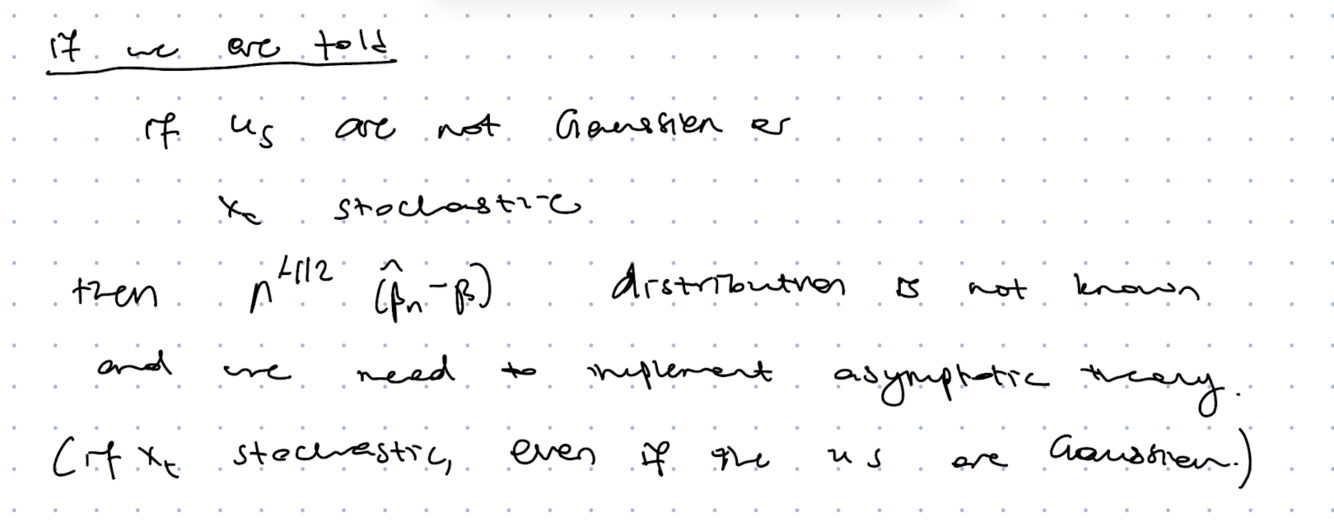 if we are told
if us are not Gaussian or
xₜ stochastic
then n^{1/2} (β̂ₙ-β) distribution is not known
and we need to implement asymptotic theory.
(if xₜ stochastic, even if the us are Gaussian.)